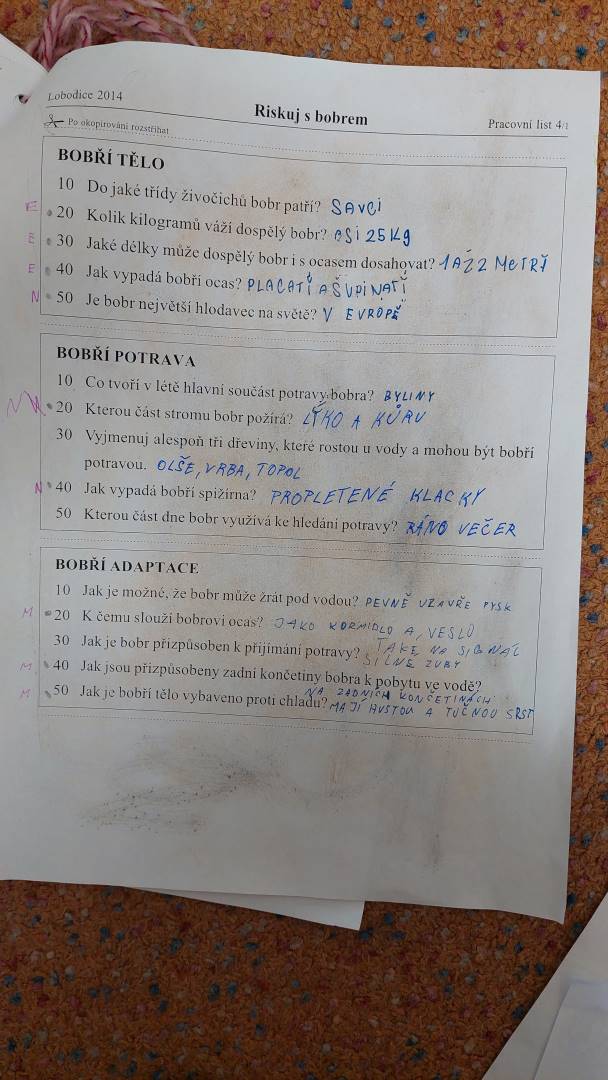 Lobodice 2014
Riskuj s bobrem
Pracovní list 4/1
Po okopírování rozstříhat
BOBŘÍ TĚLO
10 Do jaké třídy živočichů bobr patří? SAVCI
E 20 Kolik kilogramů váží dospělý bobr? ASI 25 Kg
E 30 Jaké délky může dospělý bobr i s ocasem dosahovat? 1 AŽ 2 METRŮ
E 40 Jak vypadá bobří ocas? PLACATÍ A ŠUPINATÍ
N 50 Je bobr největší hlodavec na světě? V EVROPĚ
BOBŘÍ POTRAVA
10 Co tvoří v létě hlavní součást potravy bobra? BYLINY
20 Kterou část stromu bobr požírá? LÝKO A KŮRU
30 Vyjmenuj alespoň tři dřeviny, které rostou u vody a mohou být bobří
potravou. OLŠE, VRBA, TOPOL
N 40 Jak vypadá bobří spižírna? PROPLETENÉ KLACKY
50 Kterou část dne bobr využívá ke hledání potravy? RÁNO VEČER
BOBŘÍ ADAPTACE
10 Jak je možné, že bobr může žrát pod vodou? PEVNĚ UZAVŘE PYSK
M 20 K čemu slouží bobrovi ocas? JAKO KORMIDLO A VESLO
TAKE NA SIGNÁL
30 Jak je bobr přizpůsoben k přijímání potravy? SILNE ZUBY
M 40 Jak jsou přizpůsobeny zadní končetiny bobra k pobytu ve vodě?
NA ZADNICH KONČETINÁCH
M 50 Jak je bobří tělo vybaveno proti chladu? MAJÍ HUSTOU A TUČNOU SRST